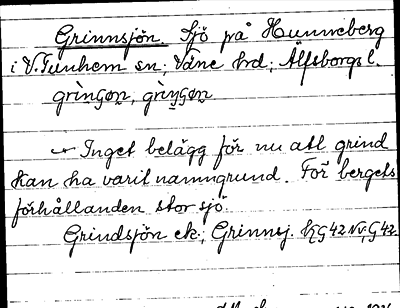 Grinnsjön. Sjö på Hunneberg
i V. Tunhem sn; Väne hd; Älfsborgs l.
grìnʃo̱n, grìnʃon
Inget belägg för nu att grind
kan ha varit namngrund. För bergets
förhållanden stor sjö.
Grindsjön ek.; Grinnsj. KG 42 NV, G 42.